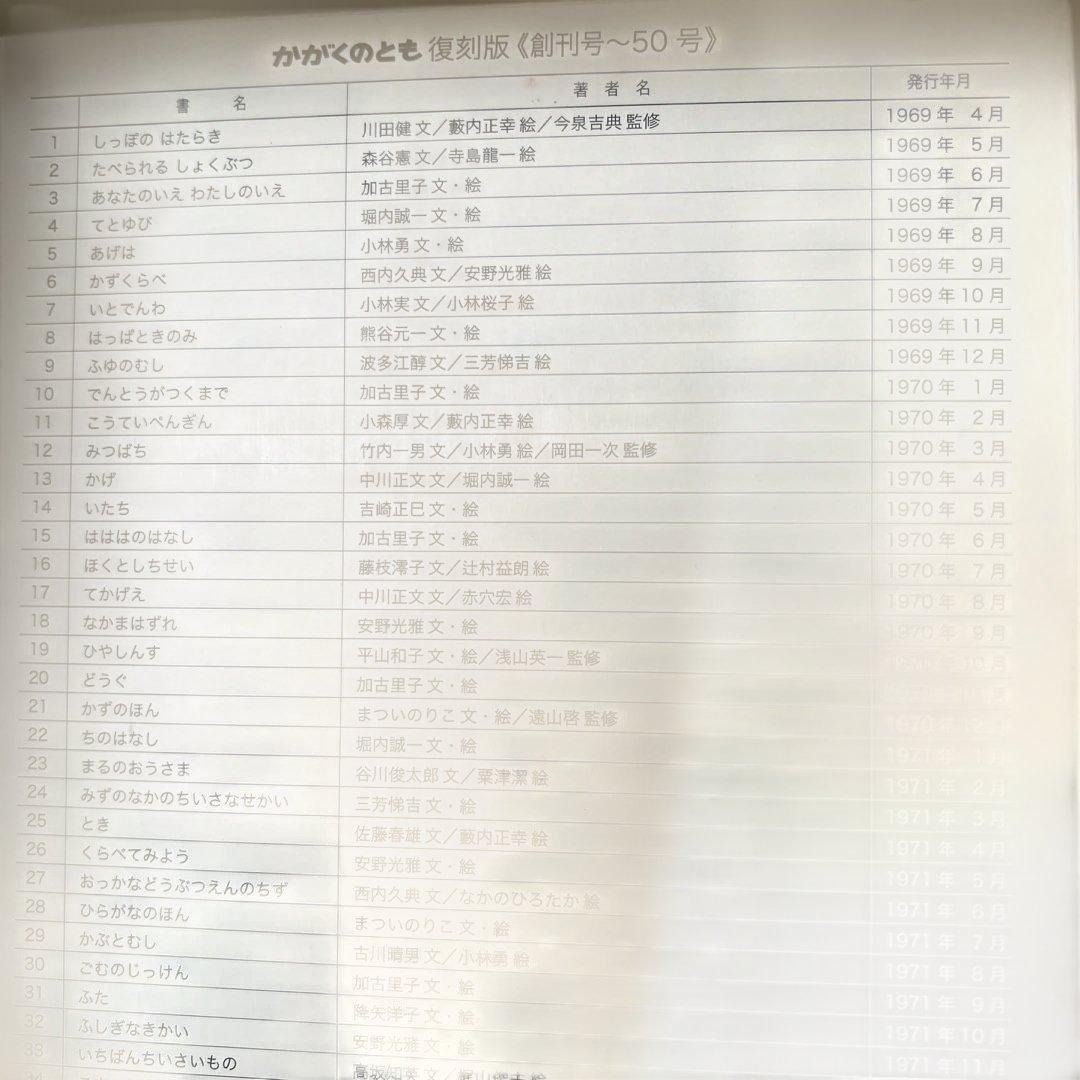 かがくのとも 復刻版《創刊号～50号》
書 名 著 者 名 発行年月
1 しっぽの はたらき 川田健 文／藪内正幸 絵／今泉吉典 監修 1969年 4月
2 たべられる しょくぶつ 森谷憲 文／寺島龍一 絵 1969年 5月
3 あなたのいえ わたしのいえ 加古里子 文・絵 1969年 6月
4 てとゆび 堀内誠一 文・絵 1969年 7月
5 あげは 小林勇 文・絵 1969年 8月
6 かずくらべ 西内久典 文／安野光雅 絵 1969年 9月
7 いとでんわ 小林実 文／小林桜子 絵 1969年 10月
8 はっぱときのみ 熊谷元一 文・絵 1969年 11月
9 ふゆのむし 波多江醇 文／三芳悌吉 絵 1969年 12月
10 でんとうがつくまで 加古里子 文・絵 1970年 1月
11 こうていぺんぎん 小森厚 文／藪内正幸 絵 1970年 2月
12 みつばち 竹内一男 文／小林勇 絵／岡田一次 監修 1970年 3月
13 かげ 中川正文 文／堀内誠一 絵 1970年 4月
14 いたち 吉崎正巳 文・絵 1970年 5月
15 はははのはなし 加古里子 文・絵 1970年 6月
16 ほくとしちせい 藤枝澪子 文／辻村益朗 絵 1970年 7月
17 てかげえ 中川正文 文／赤穴宏 絵 1970年 8月
18 なかまはずれ 安野光雅 文・絵 1970年 9月
19 ひやしんす 平山和子 文・絵／浅山英一 監修
20 どうぐ 加古里子 文・絵
21 かずのほん まついのりこ 文・絵／遠山啓 監修
22 ちのはなし 堀内誠一 文・絵 1971年 1月
23 まるのおうさま 谷川俊太郎 文／粟津潔 絵 1971年 2月
24 みずのなかのちいさなせかい 三芳悌吉 文・絵 1971年 3月
25 とき 佐藤春雄 文／藪内正幸 絵 1971年 4月
26 くらべてみよう 安野光雅 文・絵 1971年 5月
27 おっかなどうぶつえんのちず 西内久典 文／なかのひろたか 絵 1971年 6月
28 ひらがなのほん まついのりこ 文・絵 1971年 7月
29 かぶとむし 古川晴男 文／小林勇 絵 1971年 8月
30 ごむのじっけん 加古里子 文・絵 1971年 9月
31 ふた 降矢洋子 文・絵 1971年 10月
32 ふしぎなきかい 安野光雅 文・絵 1971年 11月
33 いちばんちいさいもの